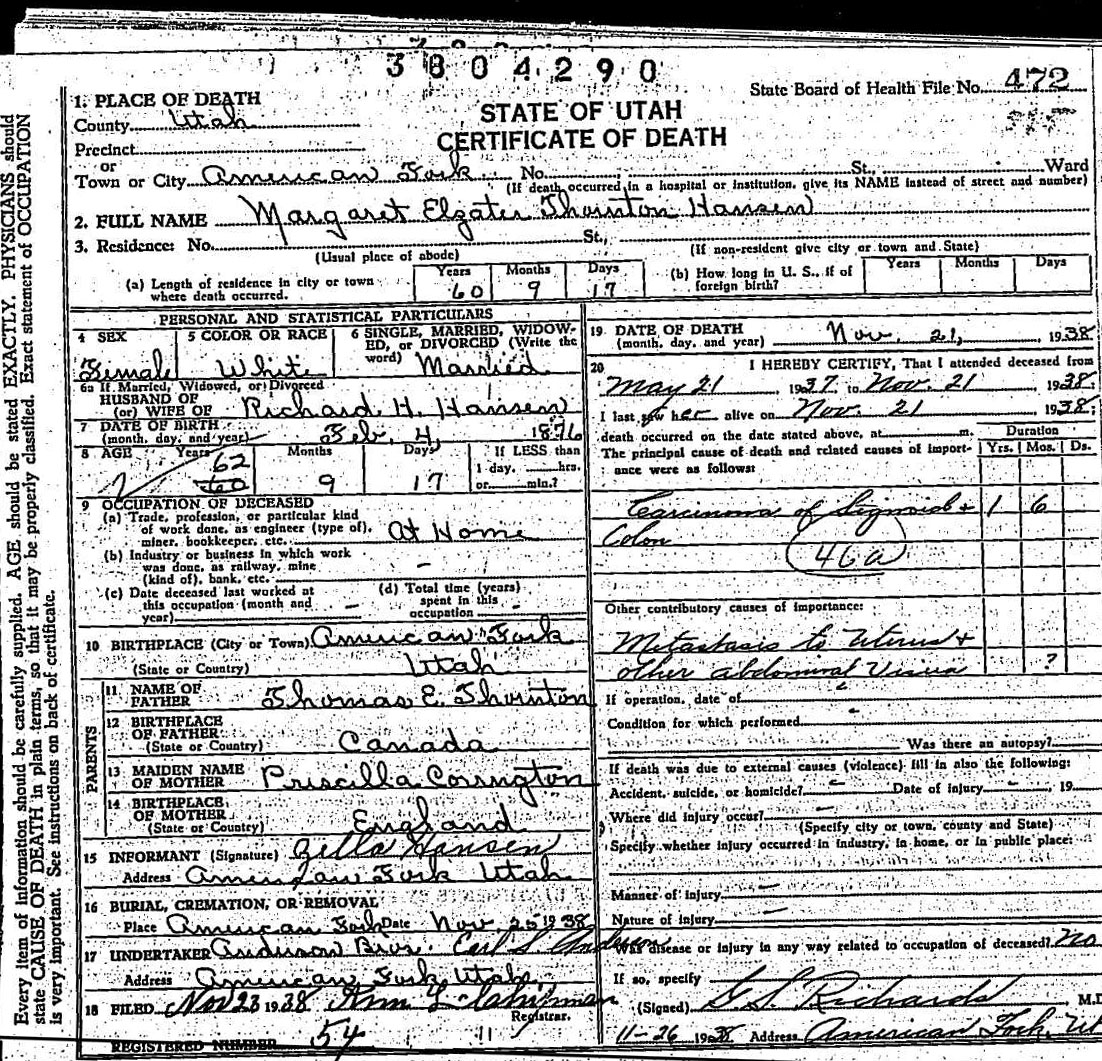 3804290
State Board of Health File No. 472
1. PLACE OF DEATH
County Utah
STATE OF UTAH
CERTIFICATE OF DEATH
Precinct
or
Town or City American Fork No. St., Ward
(If death occurred in a hospital or institution, give its NAME instead of street and number)
2. FULL NAME Margaret Elzater Thornton Hansen
3. Residence: No. St.,
(Usual place of abode) (If non-resident give city or town and State)
(a) Length of residence in city or town where death occurred. Years 60 Months 9 Days 17
(b) How long in U. S., if of foreign birth? Years Months Days
PERSONAL AND STATISTICAL PARTICULARS
4 SEX Female
5 COLOR OR RACE White
6 SINGLE, MARRIED, WIDOWED, or DIVORCED (Write the word) Married
6a If Married, Widowed, or Divorced
HUSBAND OF
(or) WIFE OF Richard H. Hansen
7 DATE OF BIRTH
(month, day, and year) Feb. 4, 1876
8 AGE Years 62 60 Months 9 Days 17 If LESS than
1 day, hrs.
or min.?
9 OCCUPATION OF DECEASED
(a) Trade, profession, or particular kind
of work done, as engineer (type of),
miner, bookkeeper, etc. At Home
(b) Industry or business in which work
was done, as railway, mine
(kind of), bank, etc. -
(c) Date deceased last worked at
this occupation (month and
year) -
(d) Total time (years)
spent in this
occupation -
10 BIRTHPLACE (City or Town) American Fork
(State or Country) Utah
PARENTS
11 NAME OF
FATHER Thomas E. Thornton
12 BIRTHPLACE
OF FATHER
(State or Country) Canada
13 MAIDEN NAME
OF MOTHER Priscilla Corrington
14 BIRTHPLACE
OF MOTHER
(State or Country) England
15 INFORMANT (Signature) Zella Hansen
Address American Fork Utah
16 BURIAL, CREMATION, OR REMOVAL
Place American Fork Date Nov. 25 1938
17 UNDERTAKER Anderson Bros. Earl S Anderson
Address American Fork Utah.
18 FILED Nov 23 1938
Registrar.
REGISTERED NUMBER 54 11
19 DATE OF DEATH
(month, day, and year) Nov. 21, 1938
20 I HEREBY CERTIFY, That I attended deceased from
May 21 1937 to Nov. 21 1938
I last saw her alive on Nov. 21 1938
death occurred on the date stated above, at m.
The principal cause of death and related causes of importance were as follows:
Duration
Yrs. Mos. Ds.
Carcinoma of Sigmoid + 1 6
Colon
46a
Other contributory causes of importance:
Metastasis to Uterus +
other abdominal Viscera ?
If operation, date of
Condition for which performed
Was there an autopsy?
If death was due to external causes (violence) fill in also the following:
Accident, suicide, or homicide? Date of injury , 19
Where did injury occur?
(Specify city or town, county and State)
Specify whether injury occurred in industry, in home, or in public place:
Manner of injury
Nature of injury
Was disease or injury in any way related to occupation of deceased? no
If so, specify
(Signed) G. S. Richards M.D.
11-26 1938 Address American Fork, Ut
Every item of information should be carefully supplied. AGE should be stated EXACTLY. PHYSICIANS should
state CAUSE OF DEATH in plain terms, so that it may be properly classified. Exact statement of OCCUPATION
is very important. See instructions on back of certificate.